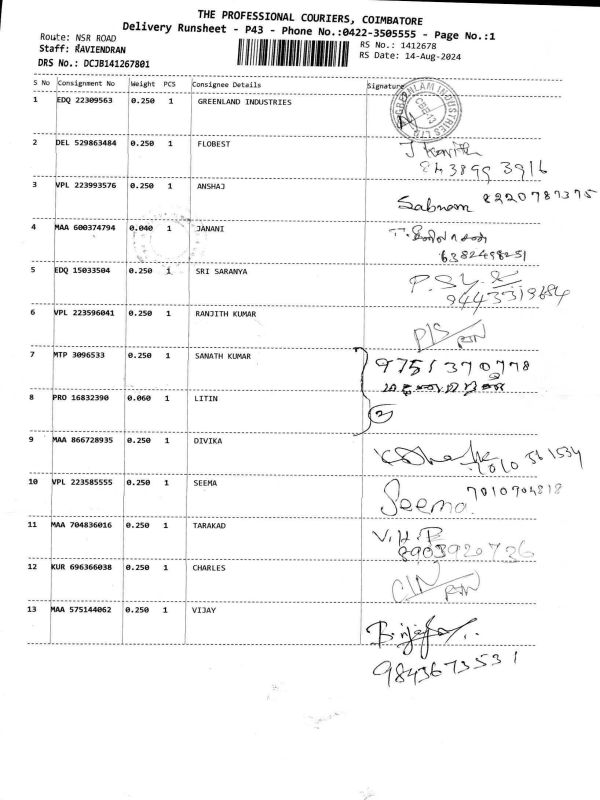 THE PROFESSIONAL COURIERS, COIMBATORE
Delivery Runsheet - P43 - Phone No.:0422-3505555 - Page No.:1
Route: NSR ROAD
RS No.: 1412678
Staff: RAVIENDRAN
RS Date: 14-Aug-2024
DRS No.: DCJB141267801
S No Consignment No Weight PCS Consignee Details Signature
1 EDQ 22309563 0.250 1 GREENLAND INDUSTRIES
GREENLAM INDUSTRIES LTD
CBE-13
2 DEL 529863484 0.250 1 FLOBEST
3 VPL 223993576 0.250 1 ANSHAJ
Sabnam 8220787375
4 MAA 600374794 0.040 1 JANANI
6382498251
5 EDQ 15033504 0.250 1 SRI SARANYA
9443319684
6 VPL 223596041 0.250 1 RANJITH KUMAR
7 MTP 3096533 0.250 1 SANATH KUMAR
9751370778
8 PRO 16832390 0.060 1 LITIN
2
9 MAA 866728935 0.250 1 DIVIKA
10 VPL 223585555 0.250 1 SEEMA
Seema 7010704818
11 MAA 704836016 0.250 1 TARAKAD
8903920736
12 KUR 696366038 0.250 1 CHARLES
13 MAA 575144062 0.250 1 VIJAY
9843673531